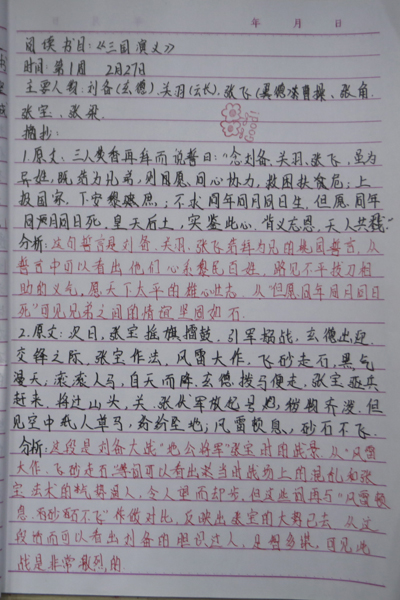 年 月 日
阅读书目:《三国演义》
时间:第1周 2月27日
主要人物:刘备(玄德)、关羽(云长)、张飞(翼德)、曹操、张角、
张宝、张梁.
摘抄:
1.原文:三人焚香再拜而说誓曰:“念刘备、关羽、张飞,虽为
异姓,既结为兄弟,则同心协力,救困扶危;上
报国家,下安黎庶;不求同年同月同日生,但愿同年
同月同日死,皇天后土,实鉴此心,背义忘恩,天人共戮.”
分析:这句誓言是刘备、关羽、张飞结拜为兄的桃园誓言,从
誓言中可以看出他们心系黎民百姓,路见不平拔刀相
助的义气,愿天下太平的雄心壮志,从“但愿同年同月同日
死”可见兄弟之间的情深坚固如石.
2.原文:次日,张宝摇旗擂鼓,引军搦战,玄德出迎.
交锋之际,张宝作法,风雷大作,飞砂走石,黑气
漫天;滚滚人马,自天而降,玄德拨马便走,张宝驱兵
赶来,将过山头,关、张伏军放起号炮,秽物齐泼.但
见空中纸人草马,纷纷坠地;风雷顿息,砂石不飞.
分析:这段是刘备大战“地公将军”张宝时的战景,从“风雷
大作,飞砂走石”等词可以看出来当时战场上的混乱和张
宝法术的气势逼人,令人望而却步,但这些词再与“风雷顿
息,砂石不飞”作做对比,反映出张宝的大势已去,从这
段话可以看出刘备的胆识过人,足智多谋,可见此
战是非常激烈的